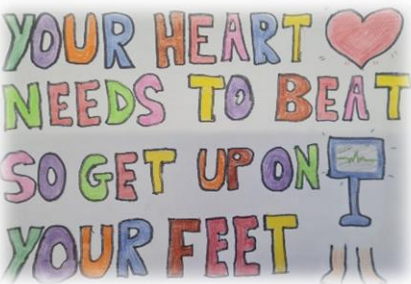 YOUR HEART
NEEDS TO BEAT
SO GET UP ON
YOUR FEET